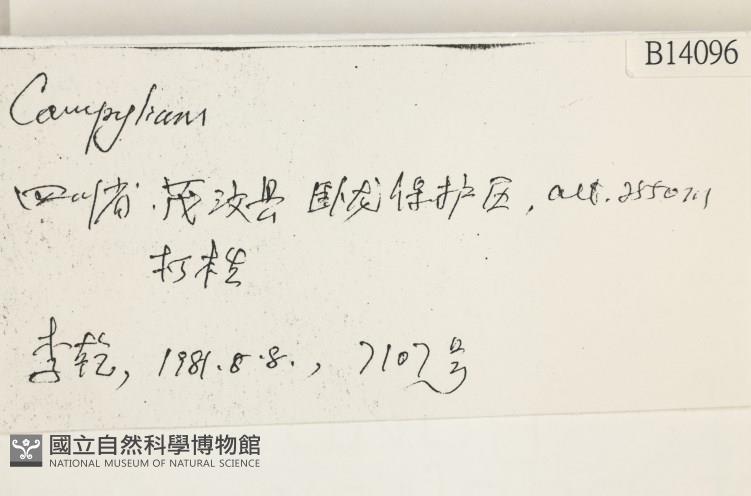 B14096
Campylium
四川省.茂汶县 卧龙保护区, alt. 2550m
李乾, 1981.8.8., 7107号
國立自然科學博物館
NATIONAL MUSEUM OF NATURAL SCIENCE